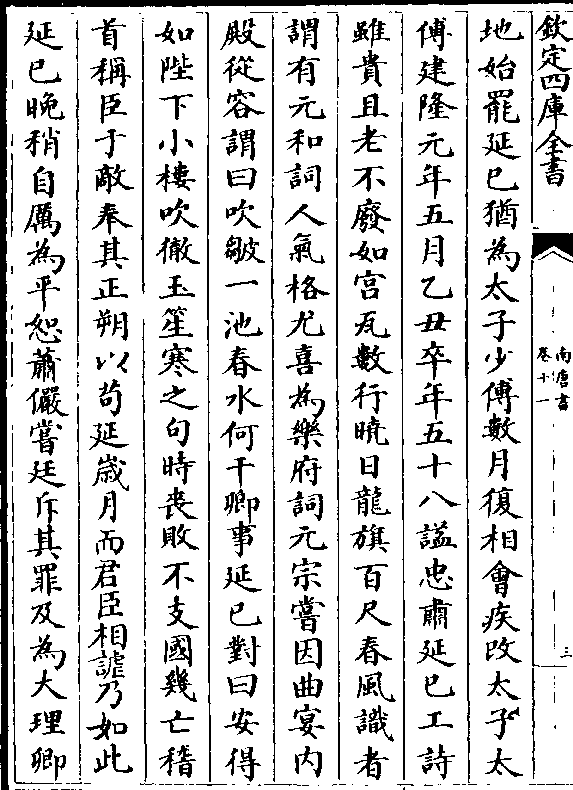 欽定四庫全書
南唐書
卷十一
三
地始罷延巳猶為太子少傅數月復相會疾改太子太
傅建隆元年五月乙丑卒年五十八諡忠肅延巳工詩
雖貴且老不廢如宫瓦數行曉日龍旗百尺春風識者
謂有元和詞人氣格尤喜為樂府詞元宗嘗因曲宴内
殿從容謂曰吹皺一池春水何干卿事延巳對曰安得
如陛下小樓吹徹玉笙寒之句時喪敗不支國幾亡稽
首稱臣于敵奉其正朔以苟延歲月而君臣相謔乃如此
延巳晚稍自厲為平恕蕭儼嘗廷斥其罪及為大理卿